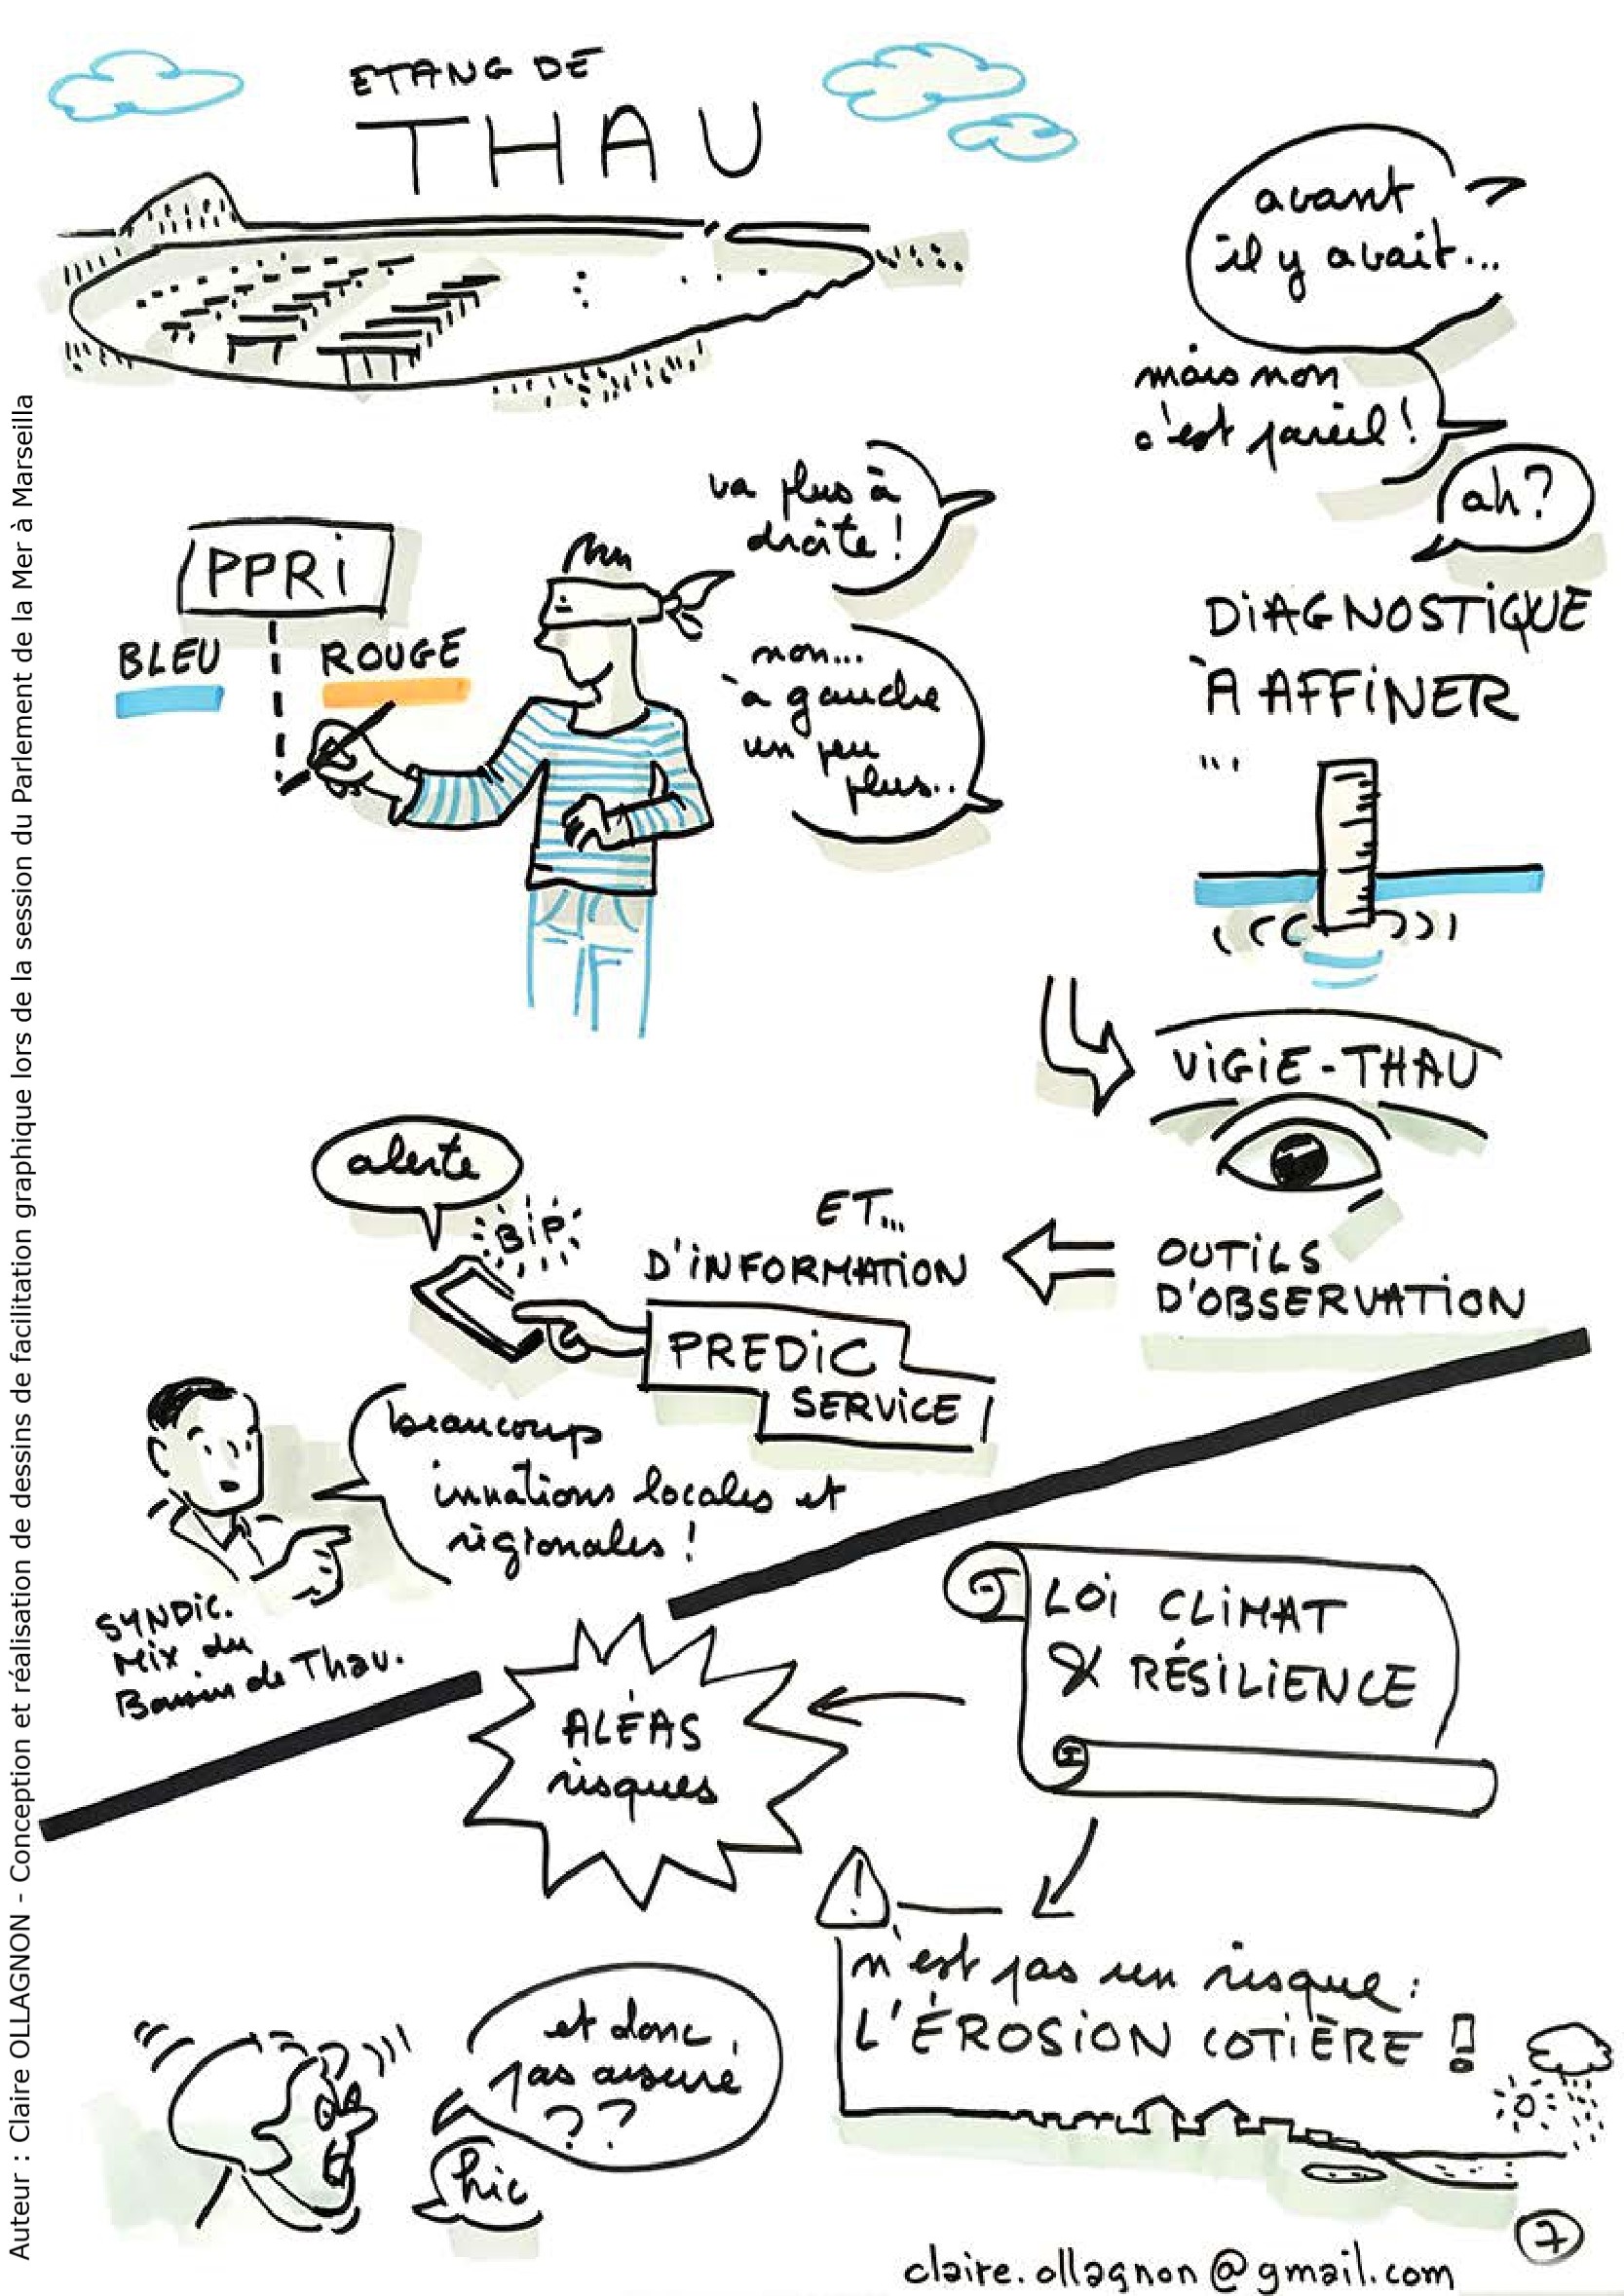 ETANG DE
THAU
avant
il y avait...
mais non
c'est pareil !
ah ?
va plus à
droite !
PPRi
BLEU
ROUGE
non...
à gauche
un peu
plus..
DiAGNOSTiQUE
À AFFiNER
...
ViGiE-THAU
OUTiLS
D'OBSERVATiON
ET...
D'iNFORMATiON
PREDiC
SERVicE
alerte
BiP
beaucoup
innations locales et
régionales !
SYNDic.
Mix du
Bassin de Thau.
LOi CLiMAT
& RÉSiLiENCE
ALÉAS
risques
!
n'est pas un risque :
L'ÉROSiON COTiÈRE !
et donc
pas assuré
??
hic
7
claire.ollagnon@gmail.com
Auteur : Claire OLLAGNON - Conception et réalisation de dessins de facilitation graphique lors de la session du Parlement de la Mer à Marseilla